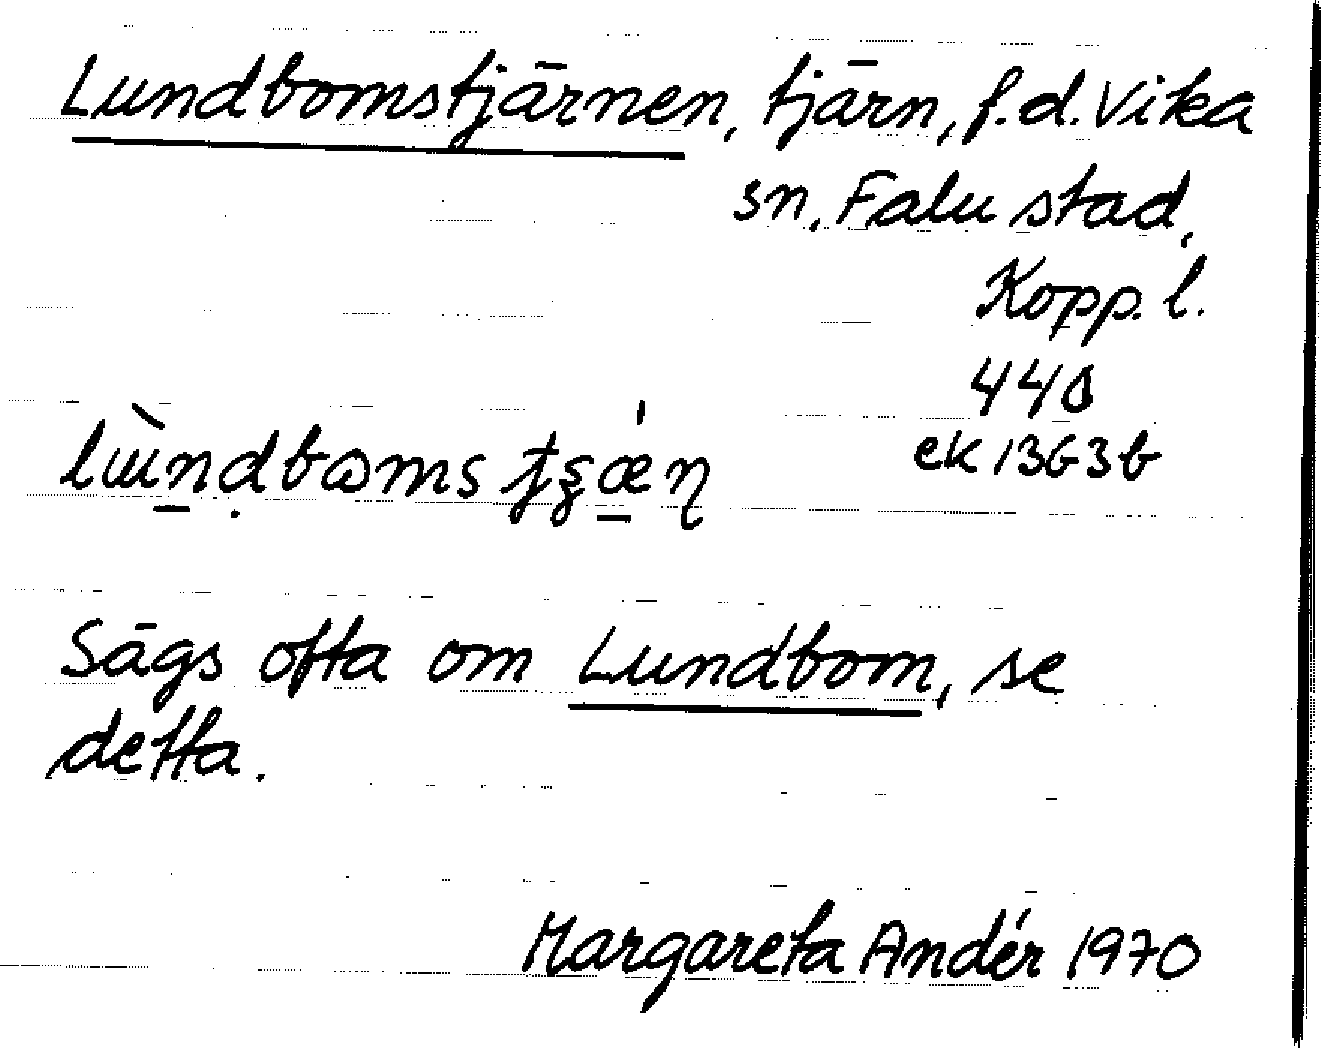 Lundbomstjärnen, tjärn, f.d. Vika
sn, Falu stad,
Kopp. l.
440
ek 1363b
Sägs ofta om Lundbom, se
detta.
Margareta Andér 1970